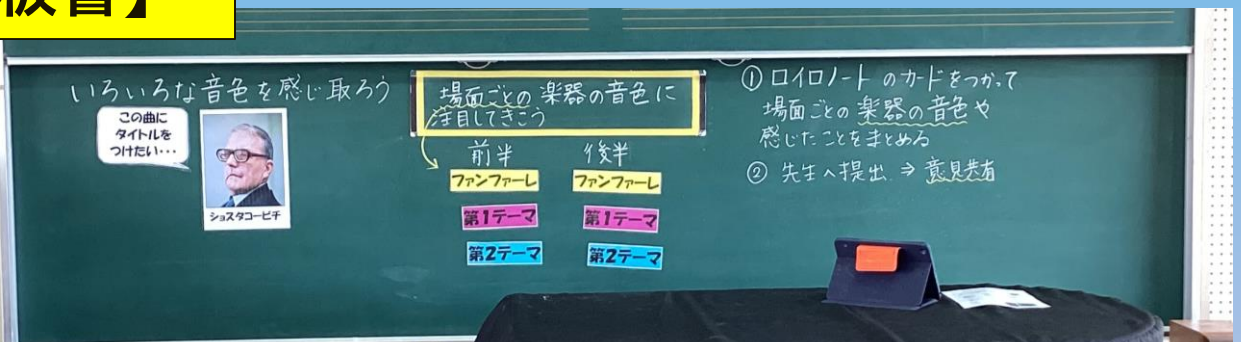 板書】
いろいろな音色を感じ取ろう
この曲に
タイトルを
つけたい…
ショスタコービチ
場面ごとの楽器の音色に
注目してきこう
前半 後半
ファンファーレ ファンファーレ
第1テーマ 第1テーマ
第2テーマ 第2テーマ
① ロイロノート のカードをつかって
場面ごとの楽器の音色や
感じたことをまとめる
② 先生へ提出 ⇒ 意見共有